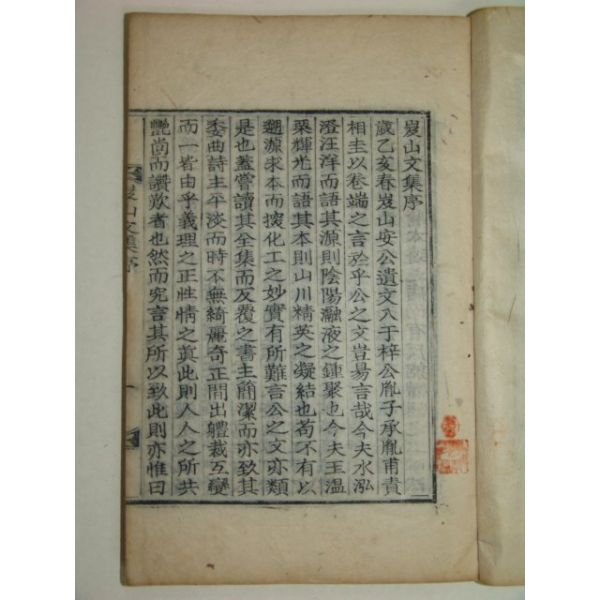 岌山文集序
歲乙亥春岌山安公遺文入于梓公胤子承胤甫責
相圭以卷端之言於乎公之文豈易言哉今夫水泓
澄汪洋而語其源則陰陽瀜液之鍾聚也今夫玉溫
栗輝光而語其本則山川精英之凝結也苟不有以
遡源求本而搜化工之妙實有所難言公之文亦類
是也蓋嘗讀其全集而反覆之書主簡潔而亦致其
委曲詩主平淡而時不無綺麗奇正間出軆裁互變
而一皆由乎義理之正性情之眞此則人人之所共
艶尚而讚歎者也然而究言其所以致此則亦惟曰
岌山文集序
一